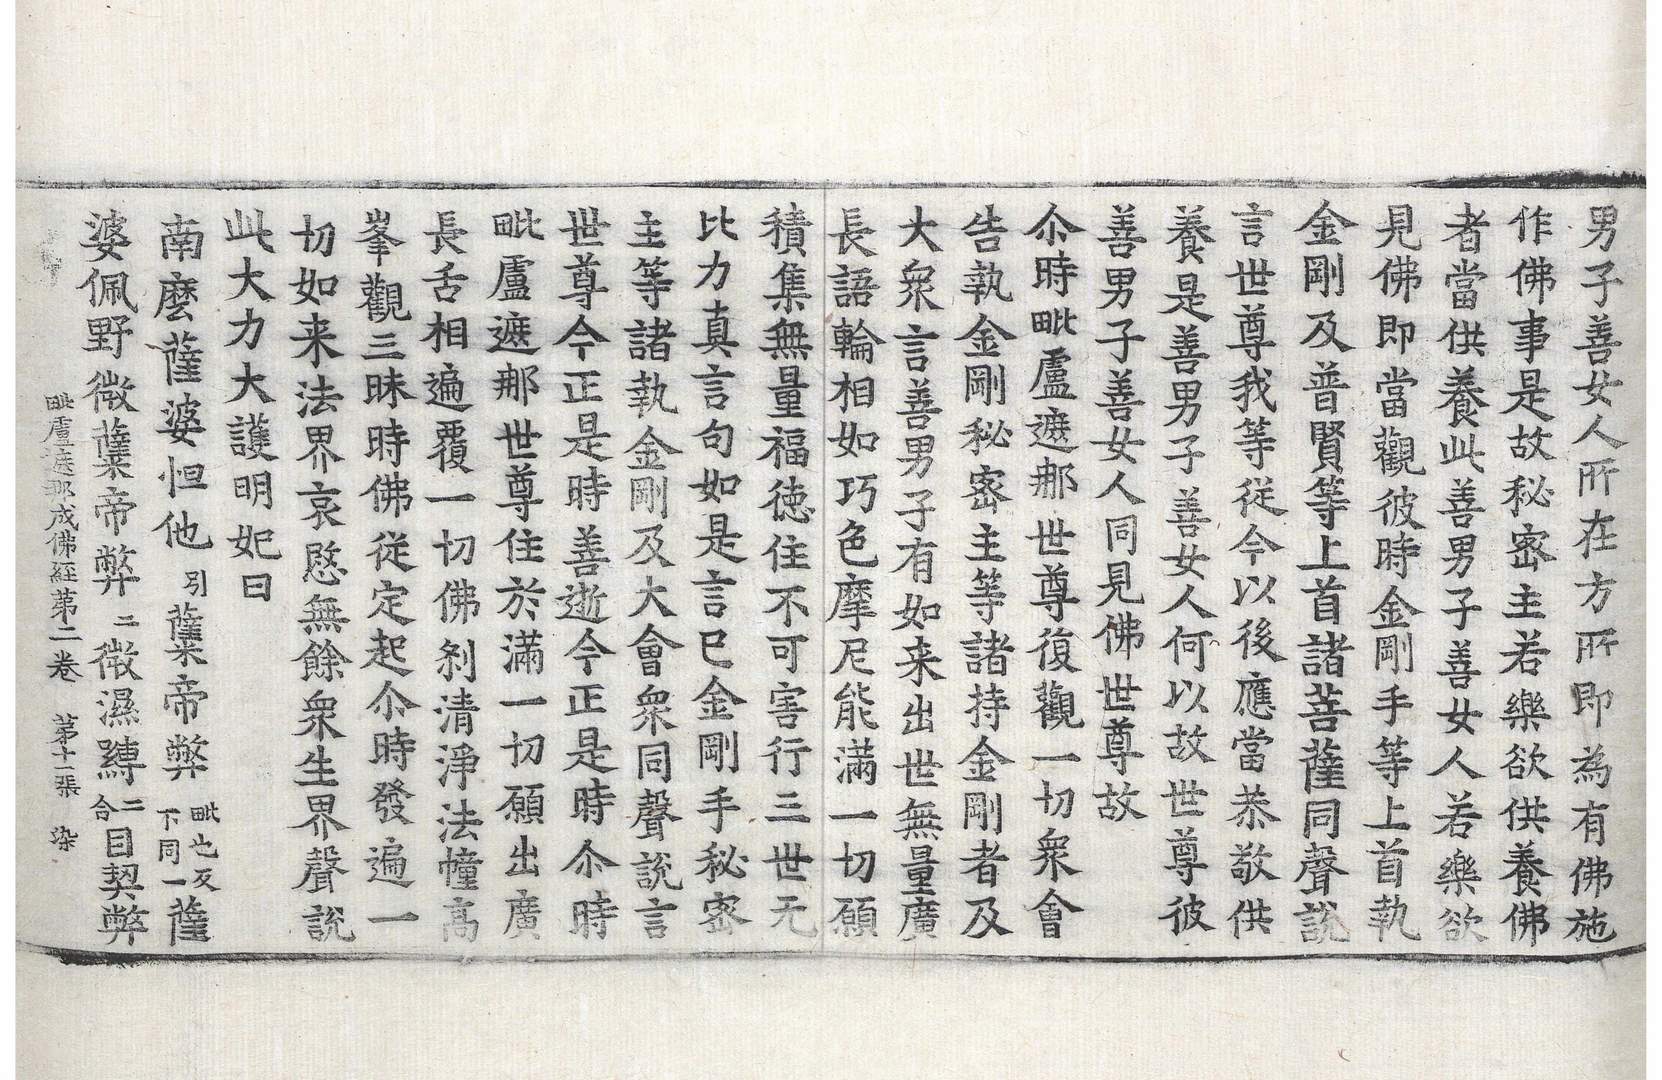 男子善女人所在方所即為有佛施
作佛事是故秘密主若樂欲供養佛
者當供養此善男子善女人若樂欲
見佛即當觀彼時金剛手等上首執
金剛及普賢等上首諸菩薩同聲說
言世尊我等從今以後應當恭敬供
養是善男子善女人何以故世尊彼
善男子善女人同見佛世尊故
尒時毗盧遮那世尊復觀一切衆會
告執金剛秘密主等諸持金剛者及
大衆言善男子有如来出世無量廣
長語輪相如巧色摩尼能滿一切願
積集無量福德住不可害行三世无
比力真言句如是言已金剛手秘密
主等諸執金剛及大會衆同聲說言
世尊今正是時善逝今正是時尒時
毗盧遮那世尊住於滿一切願出廣
長舌相遍覆一切佛刹清淨法幢高
峯觀三昧時佛從定起尒時發遍一
切如来法界哀愍無餘衆生界聲說
此大力大護明妃曰
南麼薩婆怛他引薩帝弊毗也反下同一薩
婆佩野微蘗帝弊二微濕縛二合目契弊
毗盧遮那成佛経苐二卷 苐十一張 染